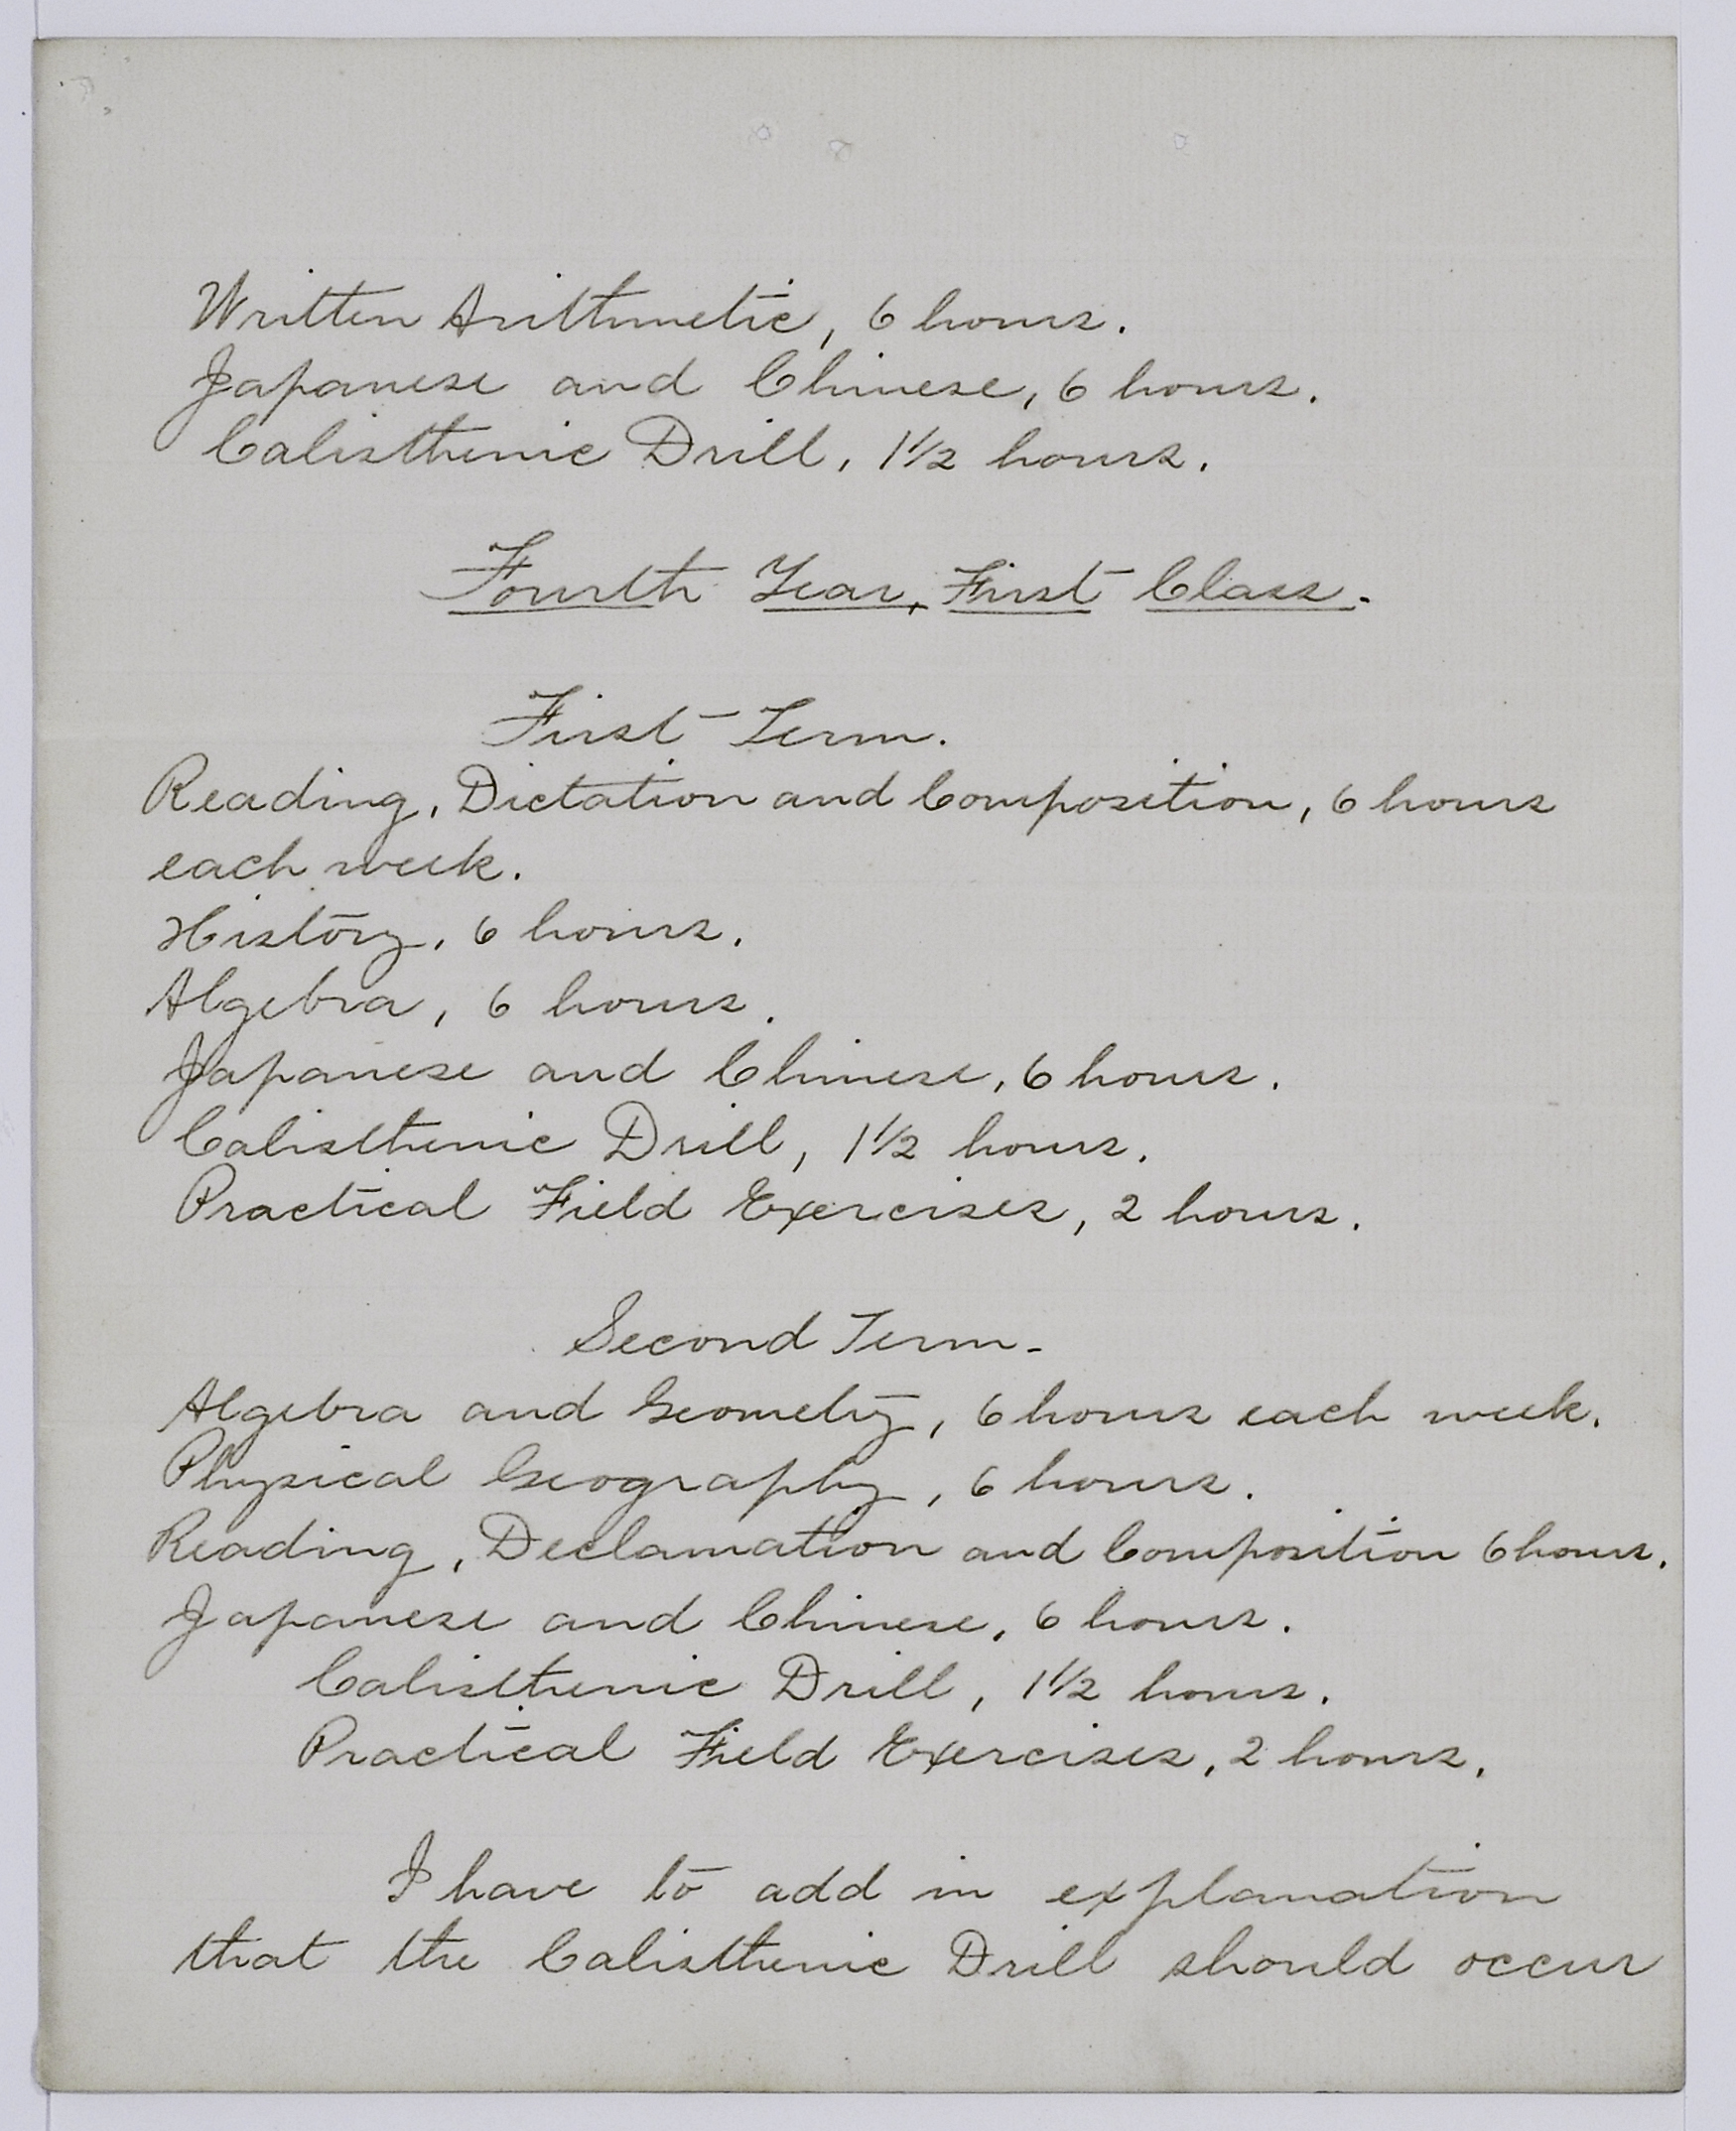 Written Arithmetic, 6 hours.
Japanese and Chinese, 6 hours.
Calisthenic Drill, 1 1/2 hours.
Fourth Year, First Class.
First Term.
Reading, Dictation and Composition, 6 hours
each week.
History, 6 hours.
Algebra, 6 hours.
Japanese and Chinese, 6 hours.
Calisthenic Drill, 1 1/2 hours.
Practical Field Exercises, 2 hours.
Second Term.
Algebra and Geometry, 6 hours each week.
Physical Geography, 6 hours.
Reading, Declamation and Composition 6 hours.
Japanese and Chinese, 6 hours.
Calisthenic Drill, 1 1/2 hours.
Practical Field Exercises, 2 hours.
I have to add in explanation
that the Calisthenic Drill should occur